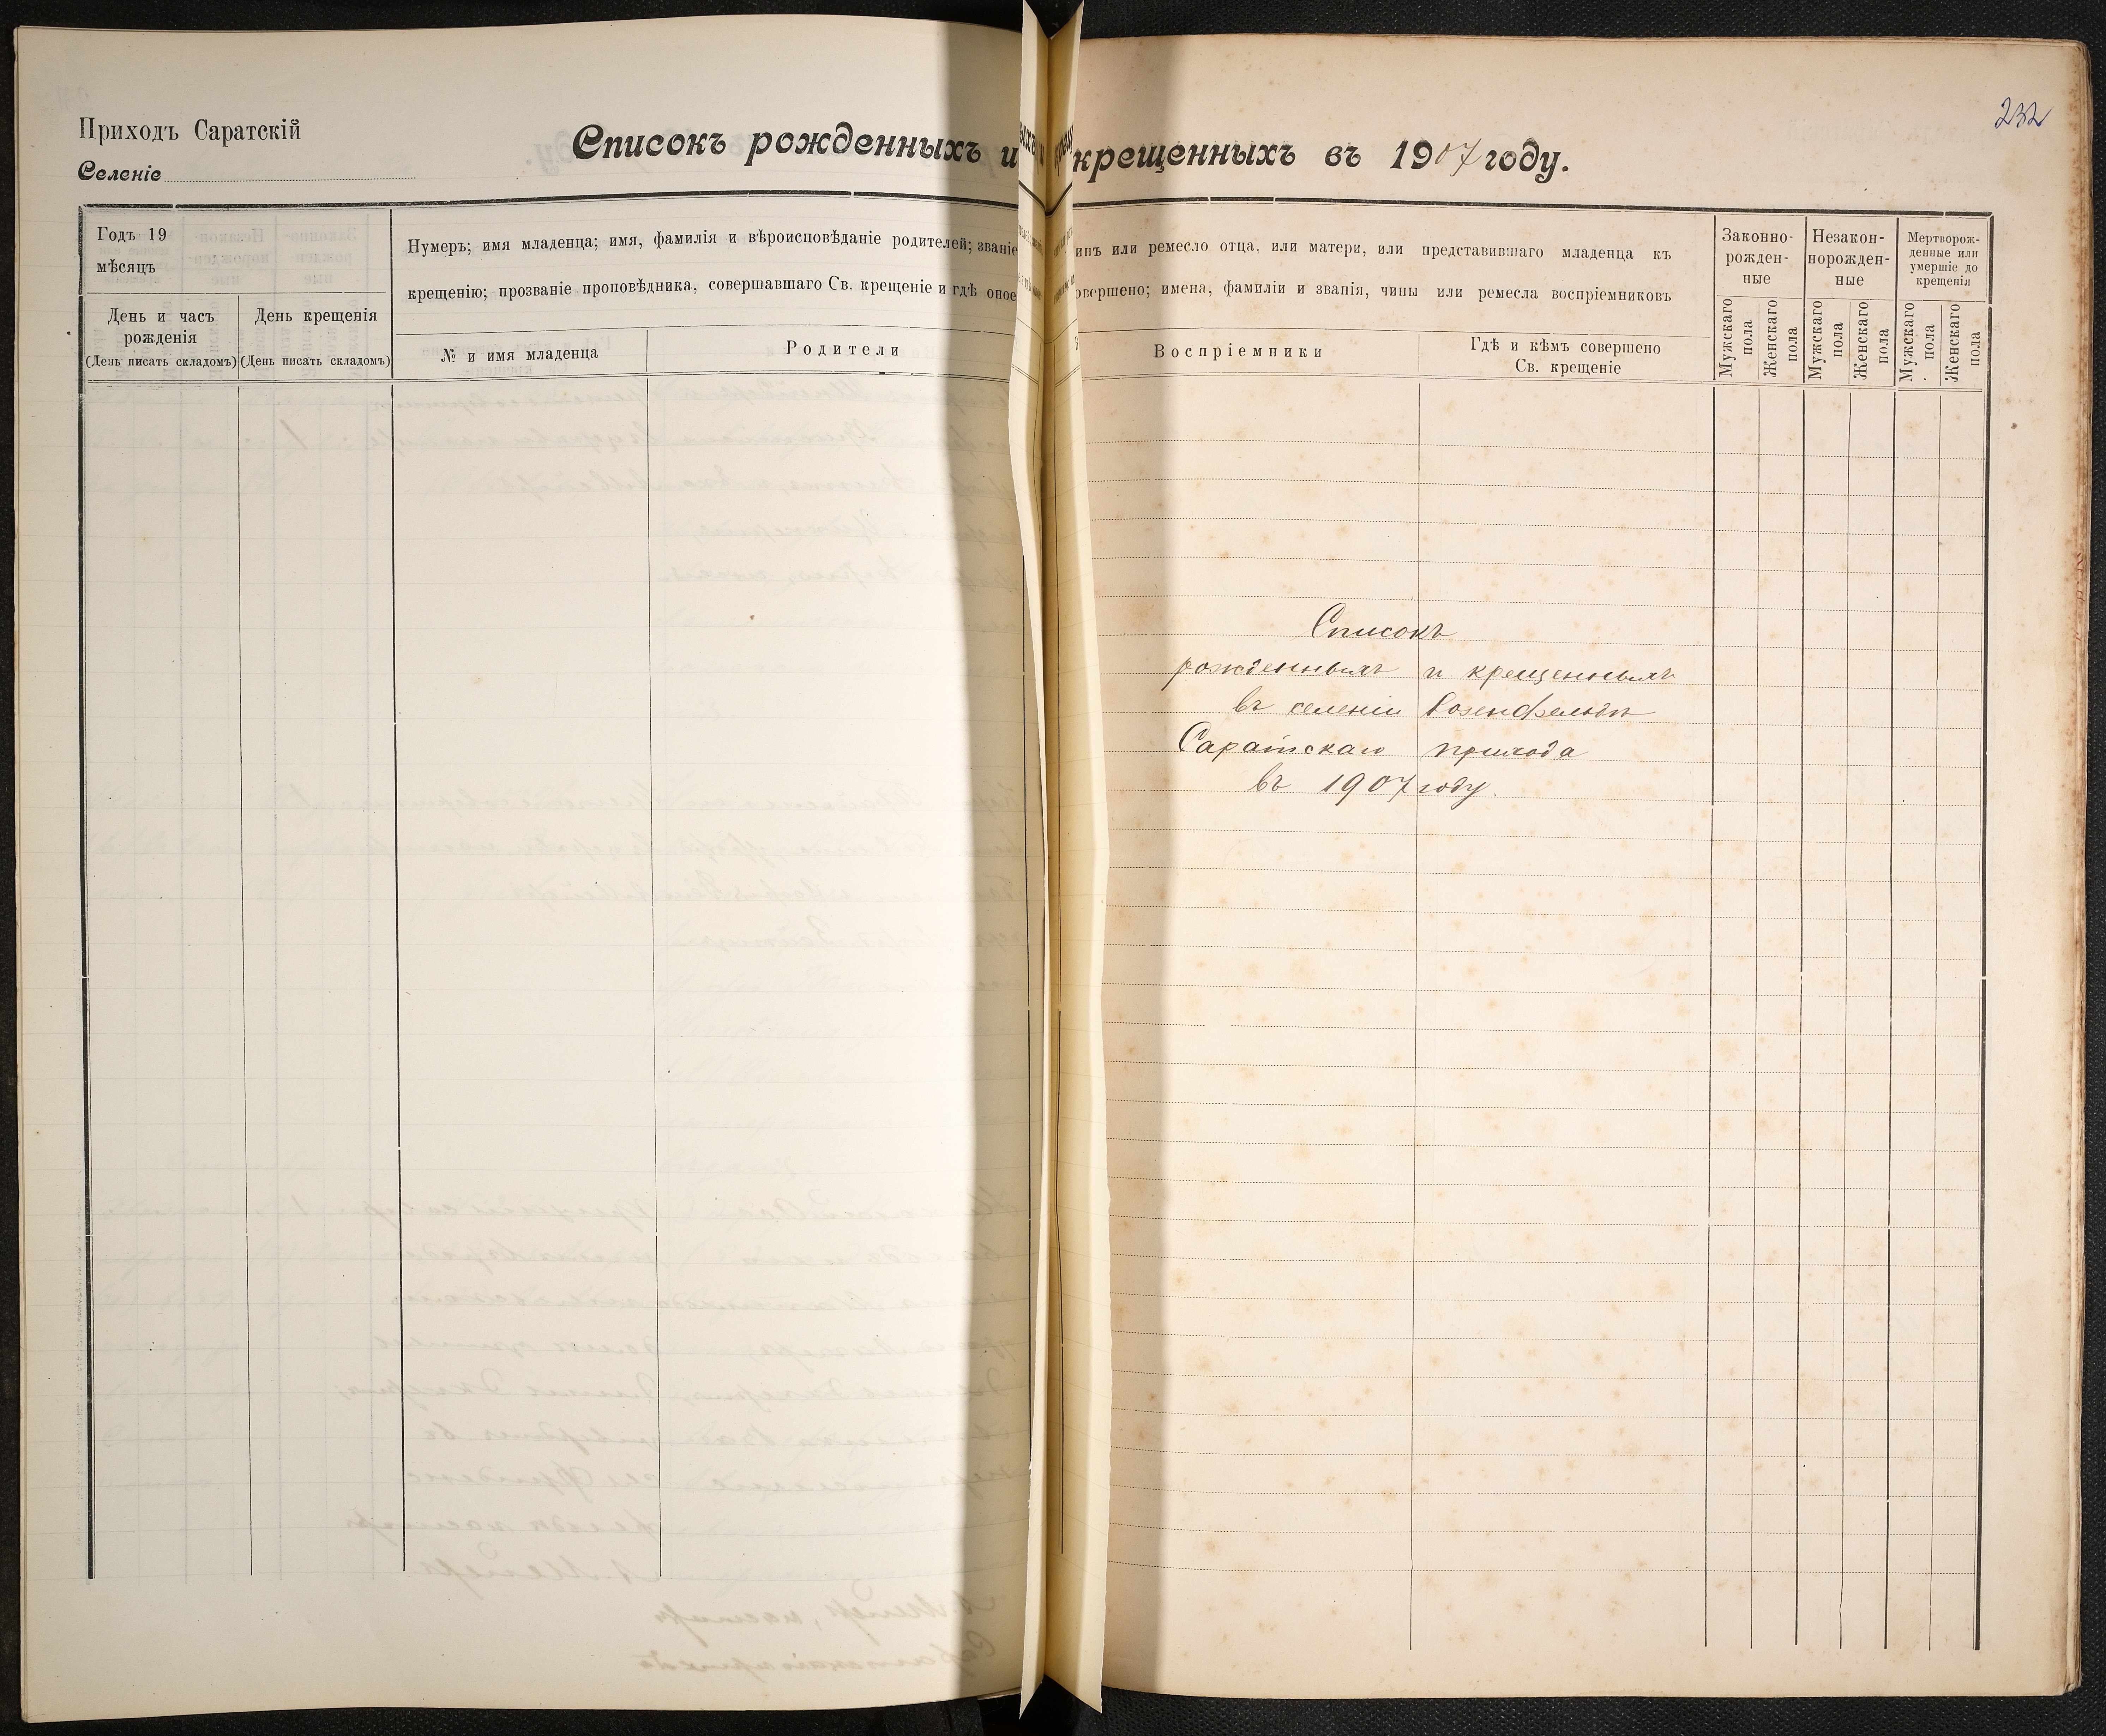 232
Приходъ Саратскій
Селеніе
Списокъ рожденныхъ и крещенныхъ въ 1907 году.
Годъ 19
мѣсяцъ
День и часъ
рожденія
(День писать складомъ)
День крещенія
(День писать складомъ)
Нумеръ; имя младенца; имя, фамилія и вѣроисповѣданіе родителей; званіе
крещенію; прозваніе проповѣдника, совершавшаго Св. крещеніе и гдѣ оное
№ и имя младенца
Родители
инъ или ремесло отца, или матери, или представившаго младенца къ
овершено; имена, фамиліи и званія, чины или ремесла воспріемниковъ
Воспріемники
Гдѣ и кѣмъ совершено
Св. крещеніе
Законно-
рожден-
ные
Незакон-
норожден-
ные
Мертворож-
денные или
умершіе до
крещенія
Мужскаго
пола
Женскаго
пола
Мужскаго
пола
Женскаго
пола
Мужскаго
пола
Женскаго
пола
Списокъ
рожденныхъ и крещенныхъ
въ селеніи Розенфельдъ
Саратскаго прихода
въ 1907 году.